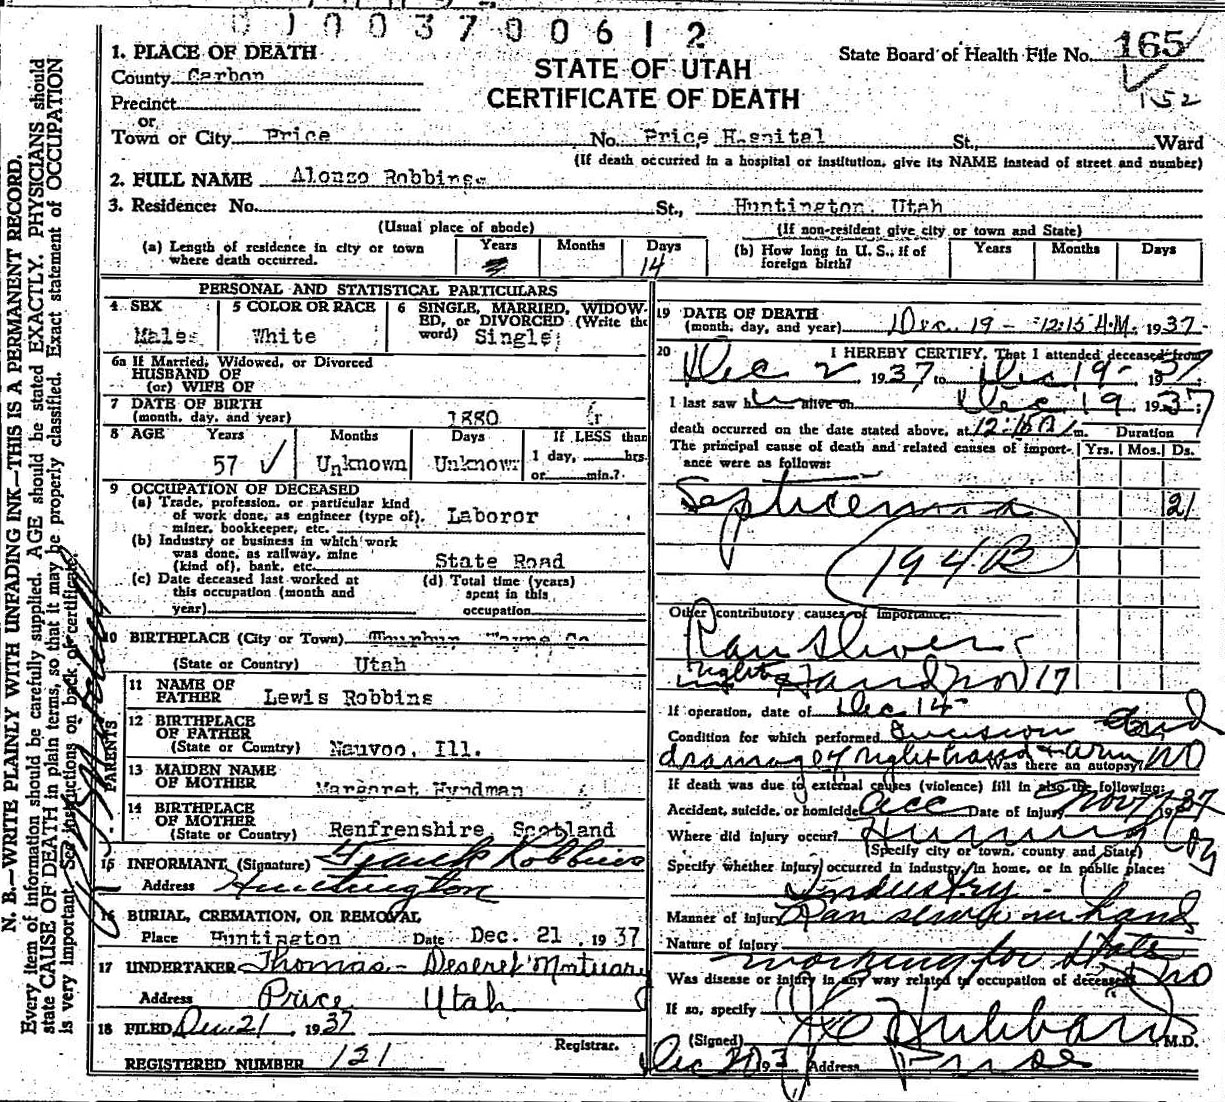 0 1 0 0 3 7 0 0 6 1 2
1. PLACE OF DEATH
County Carbon
Precinct
or
Town or City Price
STATE OF UTAH
CERTIFICATE OF DEATH
State Board of Health File No. 165
152
No. Price Hospital St., Ward
(If death occurred in a hospital or institution, give its NAME instead of street and number)
2. FULL NAME Alonzo Robbins
3. Residence: No. St., Huntington, Utah
(Usual place of abode) (If non-resident give city or town and State)
(a) Length of residence in city or town where death occurred. Years Months Days 14
(b) How long in U. S., if of foreign birth? Years Months Days
PERSONAL AND STATISTICAL PARTICULARS
4 SEX Male
5 COLOR OR RACE White
6 SINGLE, MARRIED, WIDOWED, or DIVORCED (Write the word) Single
6a If Married, Widowed, or Divorced
HUSBAND OF
(or) WIFE OF
7 DATE OF BIRTH
(month, day, and year) 1880
8 AGE Years Months Days If LESS than
57 Unknown Unknown 1 day, hrs.
or min.?
9 OCCUPATION OF DECEASED
(a) Trade, profession, or particular kind
of work done, as engineer (type of),
miner, bookkeeper, etc. Laboror
(b) Industry or business in which work
was done, as railway, mine
(kind of), bank, etc. State Road
(c) Date deceased last worked at
this occupation (month and
year)
(d) Total time (years)
spent in this
occupation
10 BIRTHPLACE (City or Town) Thurbur, Wayne Co
(State or Country) Utah
PARENTS
11 NAME OF
FATHER Lewis Robbins
12 BIRTHPLACE
OF FATHER
(State or Country) Nauvoo, Ill.
13 MAIDEN NAME
OF MOTHER Margaret Hyndman
14 BIRTHPLACE
OF MOTHER
(State or Country) Renfrenshire, Scotland
15 INFORMANT (Signature) Frank Robbins
Address Huntington
16 BURIAL, CREMATION, OR REMOVAL
Place Huntington Date Dec. 21, 1937
17 UNDERTAKER Thomas - Deseret Mortuary
Address Price Utah
18 FILED Dec 21, 1937
Registrar.
REGISTERED NUMBER 121
19 DATE OF DEATH
(month, day, and year) Dec. 19 - 12:15 A.M. 1937
20 I HEREBY CERTIFY, That I attended deceased from
Dec 2 1937 to Dec 19 - 1937
I last saw h alive on Dec 19 1937;
death occurred on the date stated above, at 12:15 A m. Duration
The principal cause of death and related causes of importance were as follows: Yrs. Mos. Ds.
Septicemia 21
194B
Other contributory causes of importance:
Ran sliver
in right hand Nov 17
If operation, date of Dec 14
Condition for which performed Incision and
drainage of right hand & arm Was there an autopsy? NO
If death was due to external causes (violence) fill in also the following:
Accident, suicide, or homicide Acc Date of injury Nov 17 1937
Where did injury occur?
(Specify city or town, county and State)
Specify whether injury occurred in industry, in home, or in public place:
Industry -
Manner of injury Ran in hand
Nature of injury
working for State
Was disease or injury in any way related to occupation of deceased? NO
If so, specify
(Signed) Hubbard M.D.
Dec 20 193 Address Price
N. B.—WRITE PLAINLY WITH UNFADING INK—THIS IS A PERMANENT RECORD.
Every item of information should be carefully supplied. AGE should be stated EXACTLY. PHYSICIANS should
state CAUSE OF DEATH in plain terms, so that it may be properly classified. Exact statement of OCCUPATION
is very important. See instructions on back of certificate.